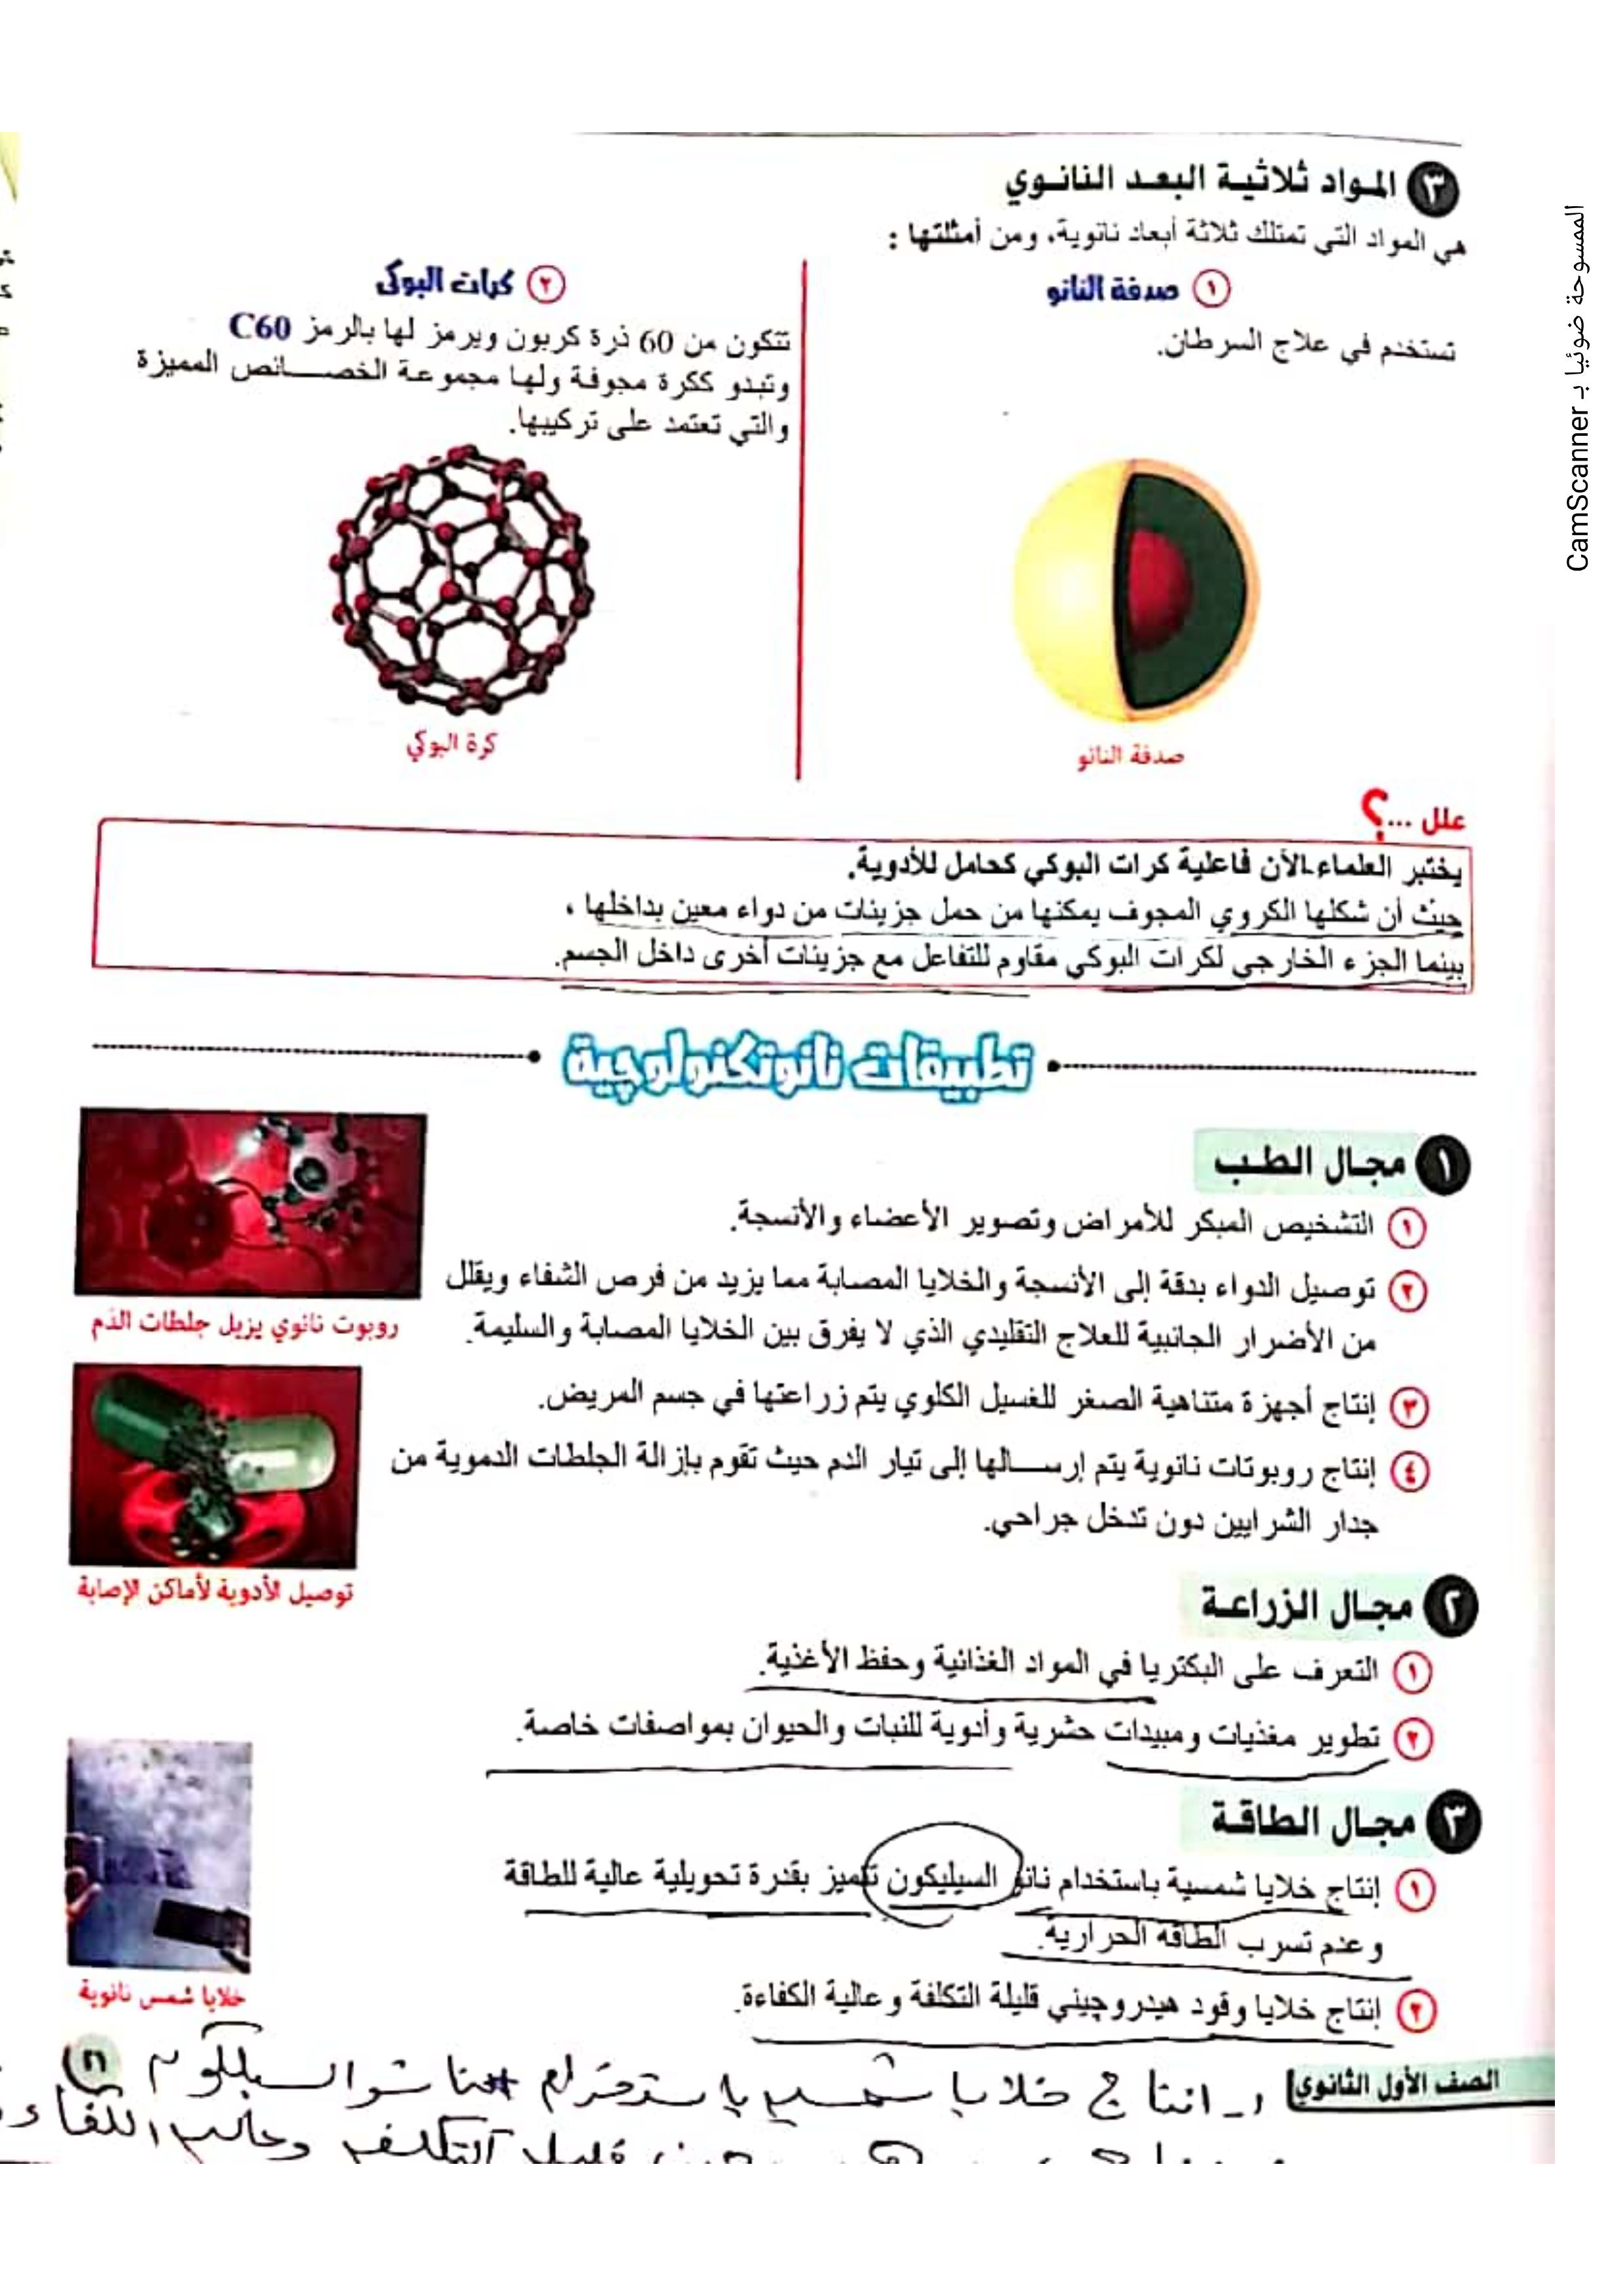 ٣ المواد ثلاثية البعد النانوي
هي المواد التي تمتلك ثلاثة أبعاد نانوية، ومن أمثلتها :
١ صدفة النانو
تستخدم في علاج السرطان.
صدفة النانو
٢ كرات البوكى
تتكون من 60 ذرة كربون ويرمز لها بالرمز C60
وتبدو ككرة مجوفة ولها مجموعة الخصائص المميزة
والتي تعتمد على تركيبها.
كرة البوكي
علل ...؟
يختبر العلماء الآن فاعلية كرات البوكي كحامل للأدوية.
حيث أن شكلها الكروي المجوف يمكنها من حمل جزيئات من دواء معين بداخلها ،
بينما الجزء الخارجي لكرات البوكي مقاوم للتفاعل مع جزيئات أخرى داخل الجسم.
تطبيقات نانوتكنولوچية
١ مجال الطب
١ التشخيص المبكر للأمراض وتصوير الأعضاء والأنسجة.
٢ توصيل الدواء بدقة إلى الأنسجة والخلايا المصابة مما يزيد من فرص الشفاء ويقلل
من الأضرار الجانبية للعلاج التقليدي الذي لا يفرق بين الخلايا المصابة والسليمة.
٣ إنتاج أجهزة متناهية الصغر للغسيل الكلوي يتم زراعتها في جسم المريض.
٤ إنتاج روبوتات نانوية يتم إرسالها إلى تيار الدم حيث تقوم بإزالة الجلطات الدموية من
جدار الشرايين دون تدخل جراحي.
روبوت نانوي يزيل جلطات الدم
توصيل الأدوية لأماكن الإصابة
٢ مجال الزراعة
١ التعرف على البكتريا في المواد الغذائية وحفظ الأغذية.
٢ تطوير مغذيات ومبيدات حشرية وأدوية للنبات والحيوان بمواصفات خاصة.
٣ مجال الطاقة
١ إنتاج خلايا شمسية باستخدام نانو السيليكون تتميز بقدرة تحويلية عالية للطاقة
وعدم تسرب الطاقة الحرارية.
٢ إنتاج خلايا وقود هيدروچيني قليلة التكلفة وعالية الكفاءة.
خلايا شمس نانوية
الصف الأول الثانوي
٢١
١- انتاج خلايا شمسيه باستخدام نانو السيلكون
قليله التكلفه وعاليه الكفاءه
الممسوحة ضوئيا بـ CamScanner